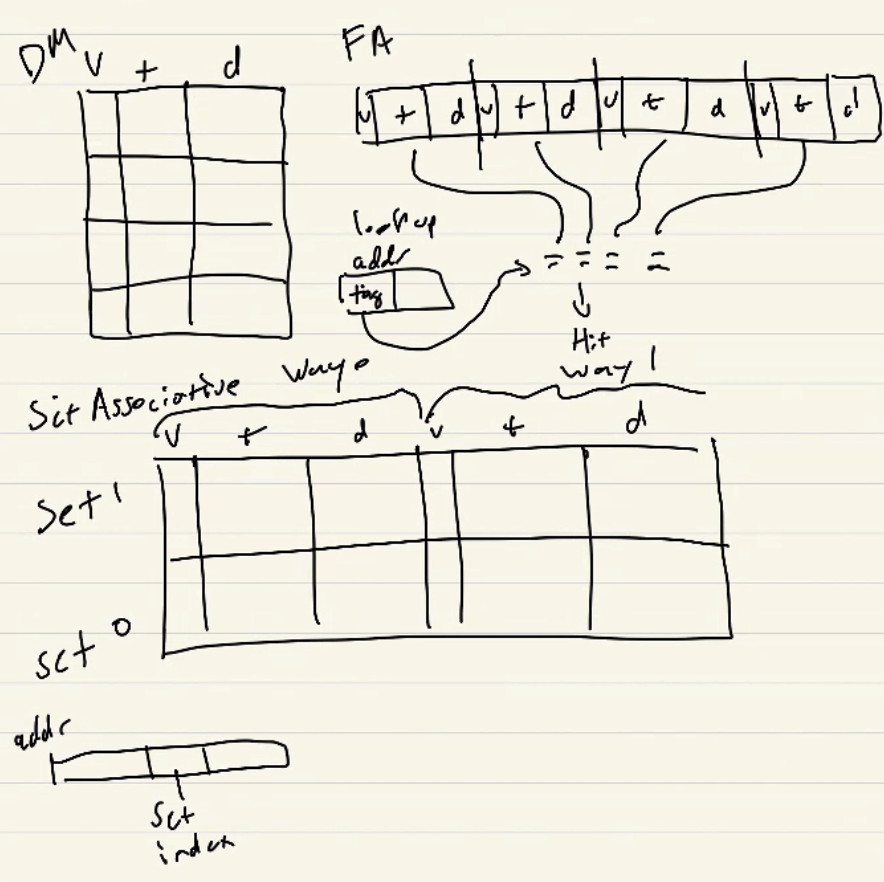 DM
V t d
FA
v t d v t d v t d v t d
lookup
addr
tag
= = = =
Hit
Set Associative
way 0
way 1
v t d v t d
Set 1
set 0
addr
set
index